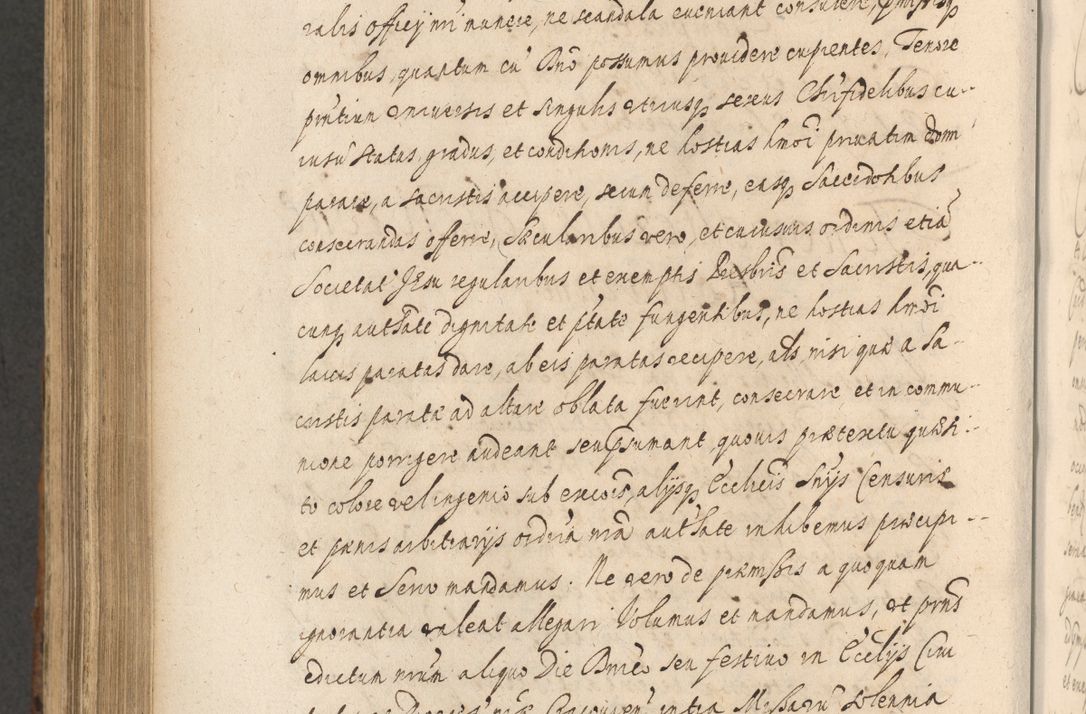 ralis officij nri munere, ne scandala eveniant consulere, 
omnibus, quantum cu Dno possumus providere cupientes, Tenore
pntium universis et singulis utriusq sexus Chrifidelibus cu-
iusu status, gradus, et conditionis, ne hostias hmoi privatim domi
parare, a sacristis accipere, secum deferre, easq Sacerdotibus
consecrandas offerre, Sæcularibus vero, et cuiusvis ordinis etia
Societat JEsu regularibus et exemptis Presbris et Sacristis, qua-
cunq autthate dignitate et ptate fungentibus, ne hostias hmoi
laicis paratas dare, ab eis paratas recipere, aut, nisi quæ a Sa-
cristis paratæ ad altare oblata fuerint, consecrare et in commu-
nione porrigere audeant seu psumant, quovis prætextu quæsi-
to colore vel ingenio sub excois, alijsq Ecclicis Snijs Censuris
et pœnis arbitrarijs ordria nra autthate inhibemus præcipi-
mus et Serio mandamus. Ne vero de præmissis a quoquam
ignorantia valeat allegari Volumus et mandamus, ut præns
edictum nrum aliquo Die Dnico seu festivo in Ecclijs Civi
intra Missaru solennia